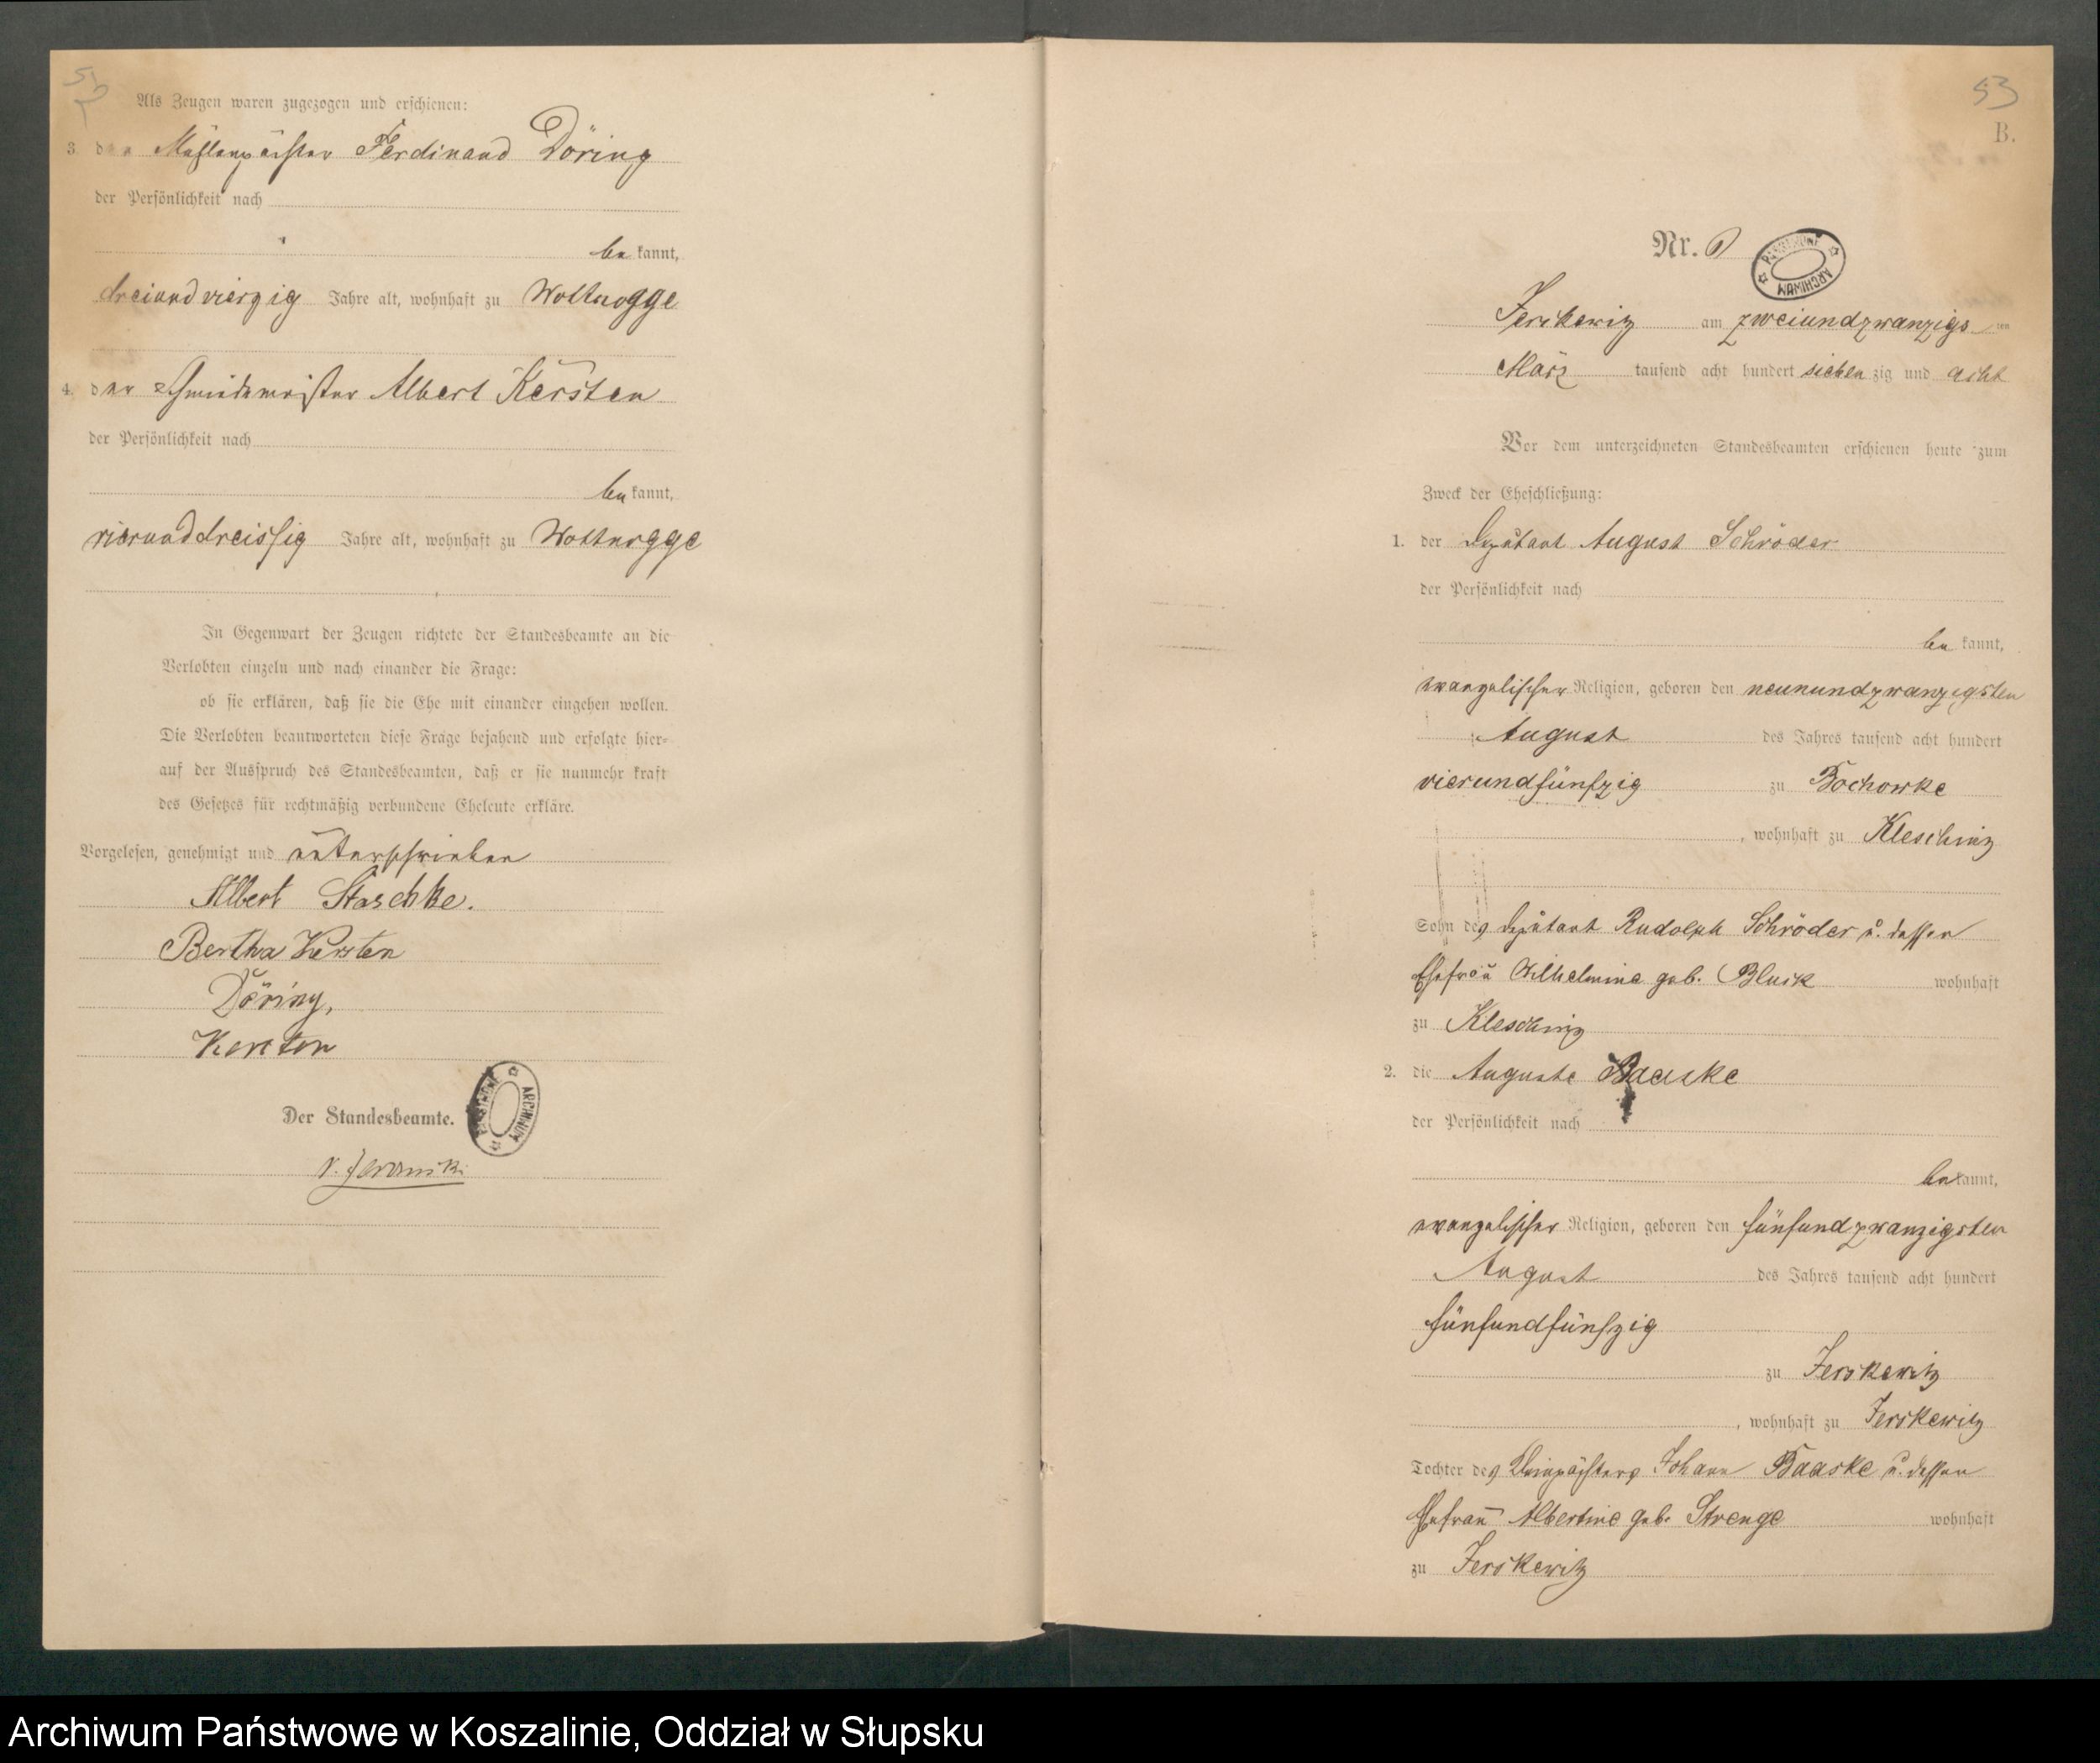 Als Zeugen waren zugezogen und erschienen:
3. der Mühlenpächter Ferdinand Döring
der Persönlichkeit nach
be kannt,
dreiundvierzig Jahre alt, wohnhaft zu Wottnogge
4. der Schmiedemeister Albert Kersten
der Persönlichkeit nach
be kannt,
vierunddreissig Jahre alt, wohnhaft zu Wottnogge
In Gegenwart der Zeugen richtete der Standesbeamte an die
Verlobten einzeln und nach einander die Frage:
ob sie erklären, daß sie die Ehe mit einander eingehen wollen.
Die Verlobten beantworteten diese Frage bejahend und erfolgte hier=
auf der Ausspruch des Standesbeamten, daß er sie nunmehr kraft
des Gesetzes für rechtmäßig verbundene Eheleute erkläre.
Vorgelesen, genehmigt und unterschrieben
Albert Staschke.
Bertha Kersten
Döring,
Kersten
Der Standesbeamte.
ARCHIWUM
53
B.
Nr.
ARCHIWUM
Jerskewitz am zweiundzwanzigs ten
März tausend acht hundert sieben zig und acht
Vor dem unterzeichneten Standesbeamten erschienen heute zum
Zweck der Eheschließung:
1. der Deputant August Schröder
der Persönlichkeit nach
be kannt,
evangelischer Religion, geboren den neunundzwanzigsten
August des Jahres tausend acht hundert
vierundfünfzig zu Bochowke
, wohnhaft zu Kleschinz
Sohn des Deputant Rudolph Schröder u. dessen
Ehefrau Wilhelmine geb. wohnhaft
zu Kleschinz
2. die Auguste Baaske
der Persönlichkeit nach
be kannt,
evangelischer Religion, geboren den fünfundzwanzigsten
August des Jahres tausend acht hundert
fünfundfünfzig
zu Jerskewitz
, wohnhaft zu Jerskewitz
Tochter des Johann Baaske u. dessen
Ehefrau Albertine geb. Strenge wohnhaft
zu Jerskewitz
Archiwum Państwowe w Koszalinie, Oddział w Słupsku